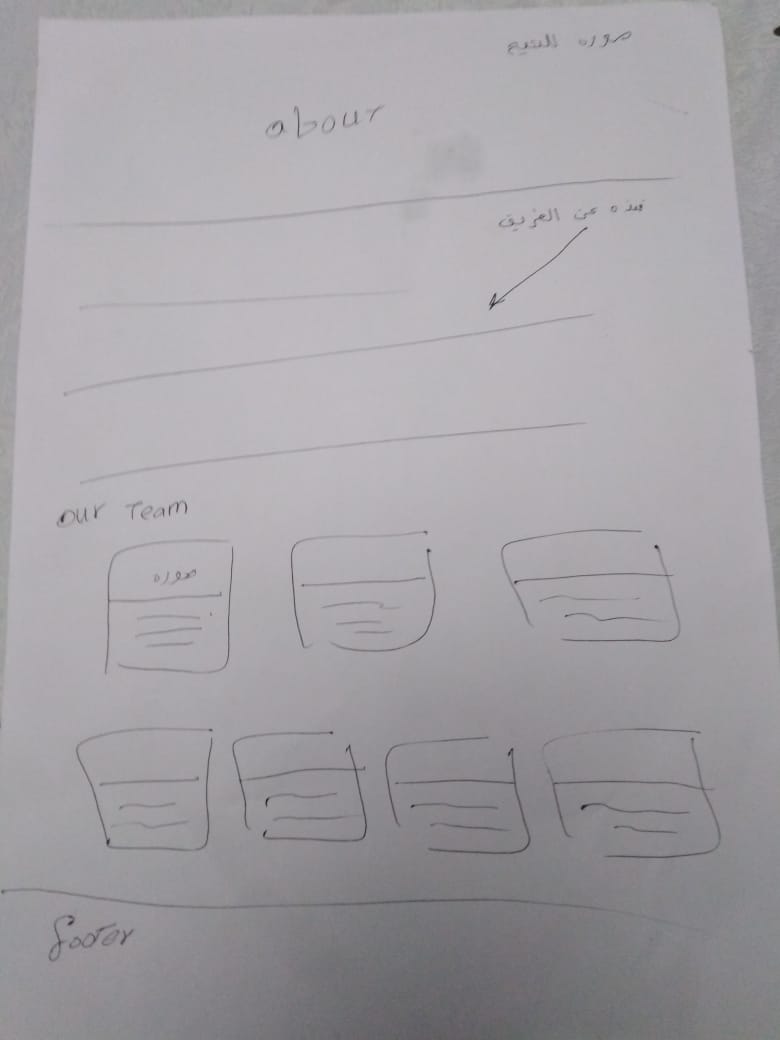 صوره
about
نبذه عن الفريق
our Team
صوره
footer